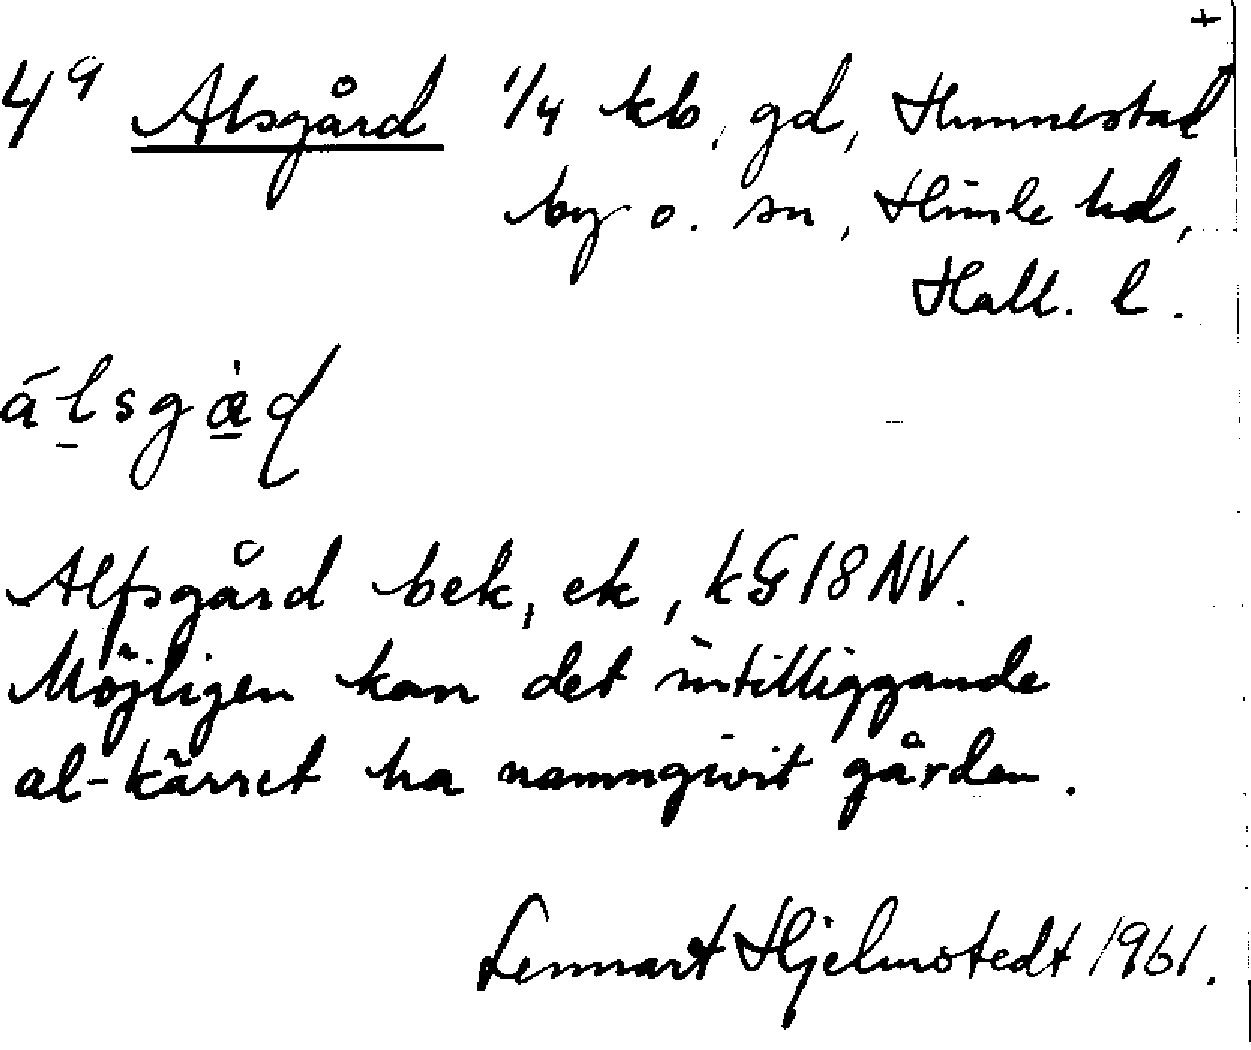 +
4a Alsgård 1/4 kb, gd, Hunnestad
by o. sn, Himle hd,
Hall. l.
álsgàd
Alfsgård bek, ek, kG18NV.
Möjligen kan det intilliggande
al-kärret ha namngivit gården.
Lennart Hjelmstedt 1961.